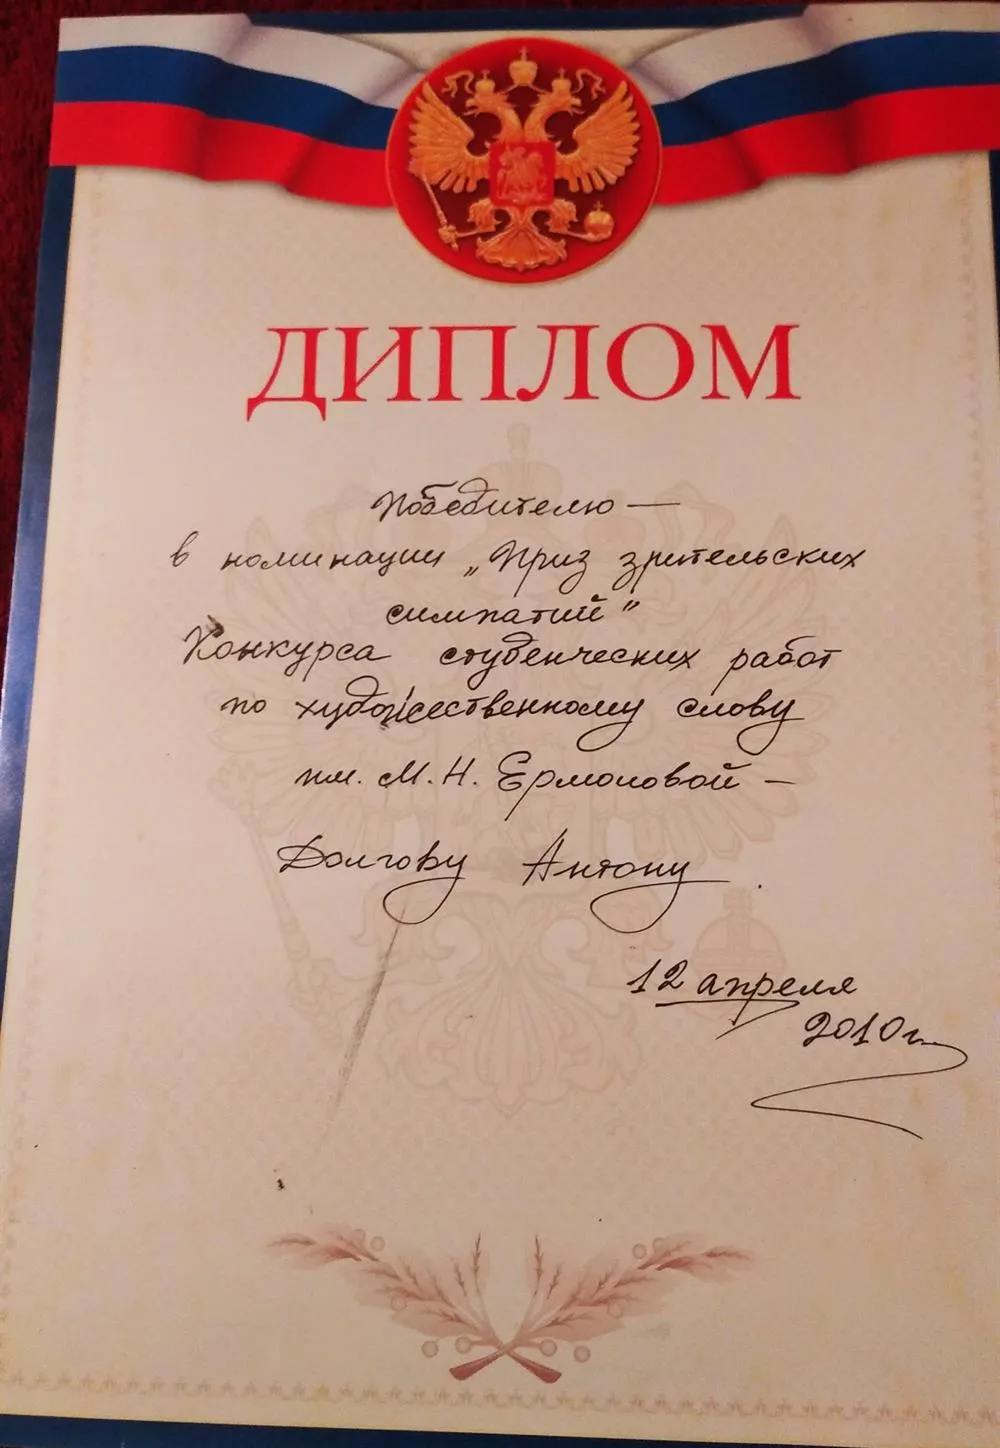 ДИПЛОМ
Победителю —
в номинации „Приз зрительских
симпатий"
Конкурса студенческих работ
по художественному слову
им. М.Н. Ермоловой —
Долгову Антону
12 апреля
2010г.